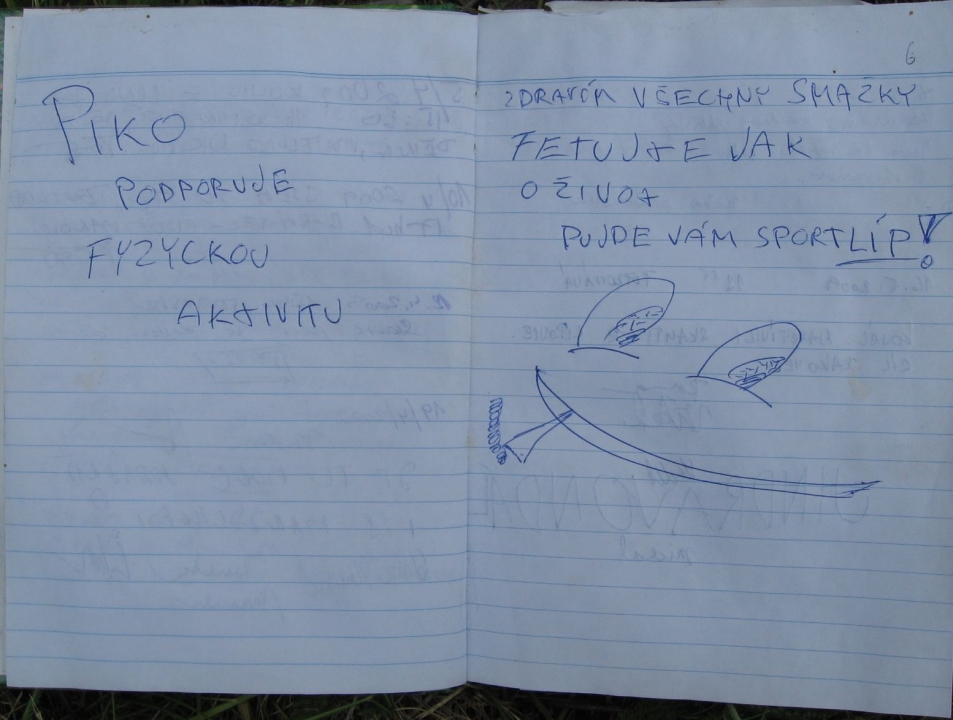 PIKO
PODPORUJE
FYZYCKOU
AKTIVITU
6
ZDRAVÍM VŠECHNY SMAŽKY
FETUJTE JAK
O ŽIVOT
PUJDE VÁM SPORT LÍP!